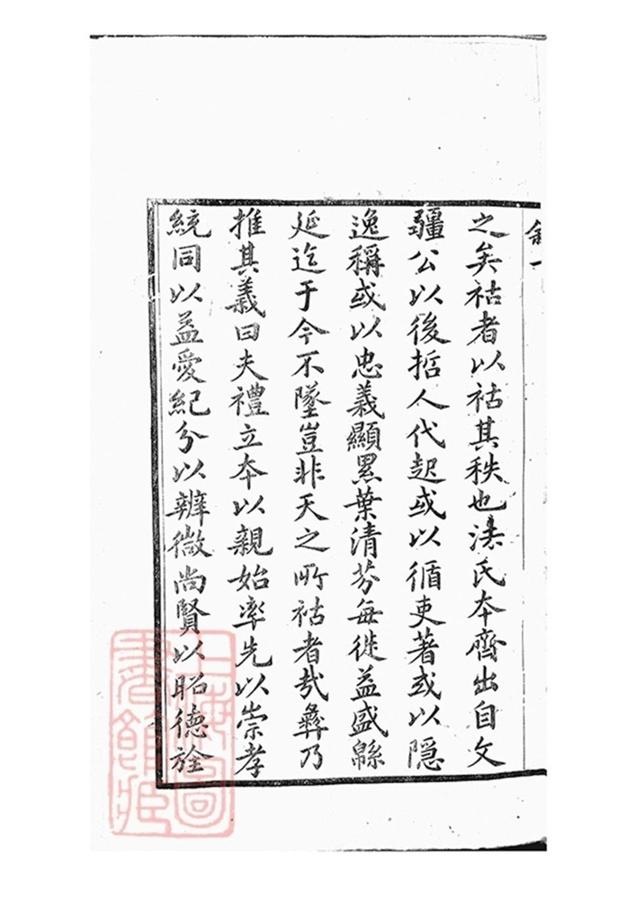 敘一
之矣祜者以祜其秩也法氏本齊出自文
疆公以後哲人代起或以循吏著或以隠
逸稱或以忠義顯累葉清芬毎徙益盛緜
延迄于今不墜豈非天之所祜者㢤彜乃
推其義曰夫禮立夲以親始率先以崇孝
統同以益愛紀分以辧微尚賢以昭徳詮
上海圖
書館藏